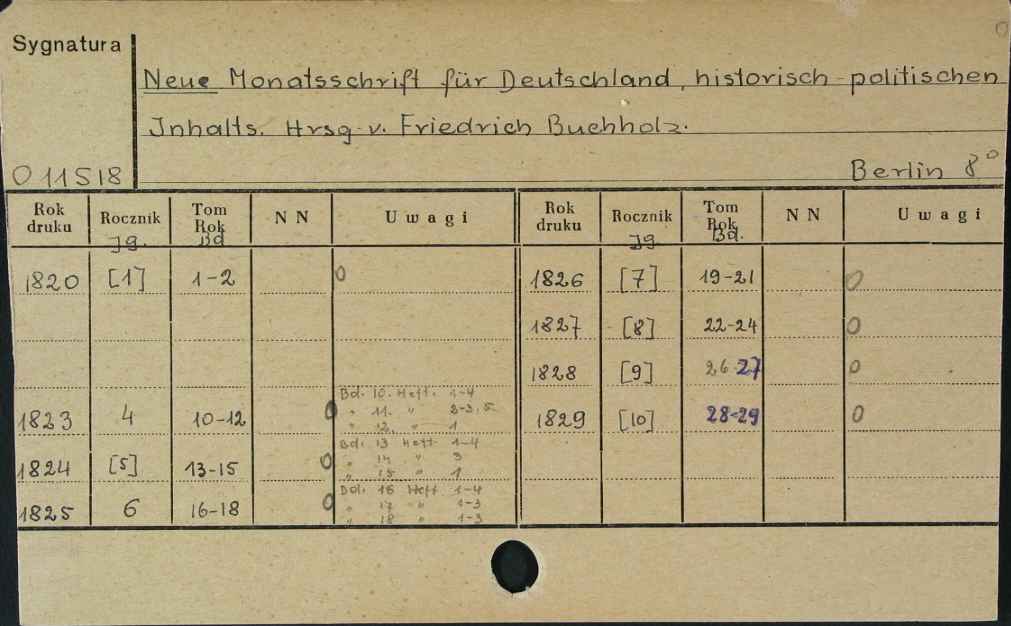 Sygnatura
Neue Monatsschrift für Deutschland, historisch-politischen
Inhalts. Hrsg. v. Friedrich Buchholz.
O 11518
Berlin 8°
Rok druku Rocznik Jg. Tom Rok Bd NN Uwagi Rok druku Rocznik Jg. Tom Rok Bd. NN Uwagi
1820 [1] 1-2 0 1826 [7] 19-21 0
1827 [8] 22-24 0
1828 [9] 26-27 0
1823 4 10-12 0 Bd. 10. Heft. 1-4 1829 [10] 28-29 0
" 11. " 2-3, 5.
" 12. " 1
1824 [5] 13-15 0 Bd. 13 Heft 1-4
" 14 " 3
" 15 " 1
1825 6 16-18 0 Bd. 16 Heft 1-4
" 17 " 1-3
" 18 " 1-3